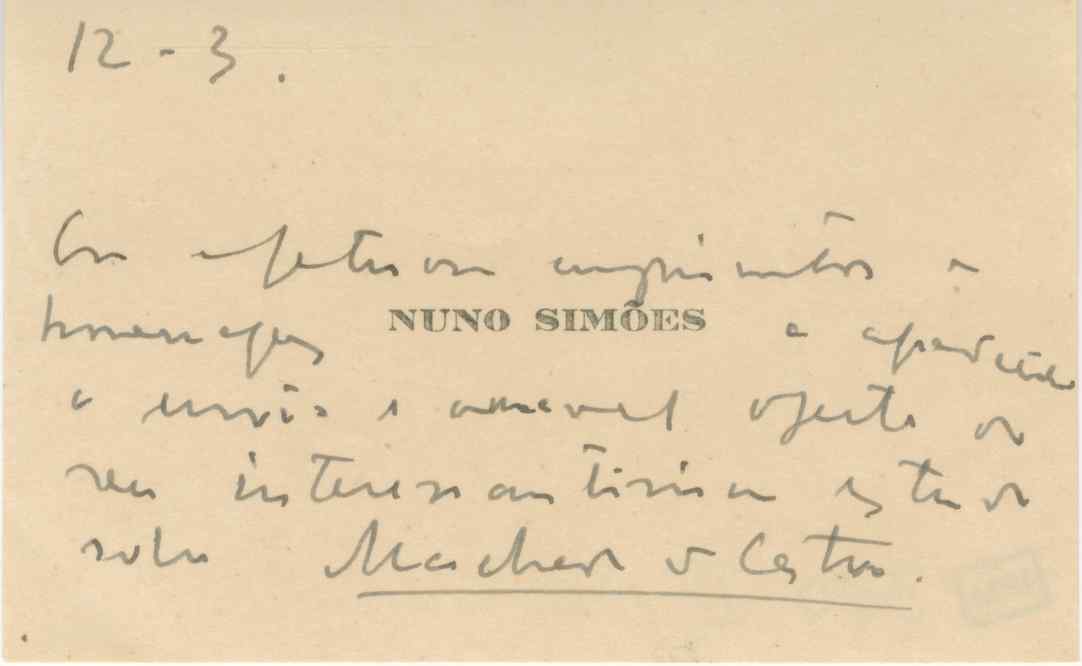 12-3.
Com afetuosos cumprimentos e
homenagens NUNO SIMÕES e agradecido
o envio e amavel oferta do
seu interessantissimo estudo
sobre Machado de Castro.